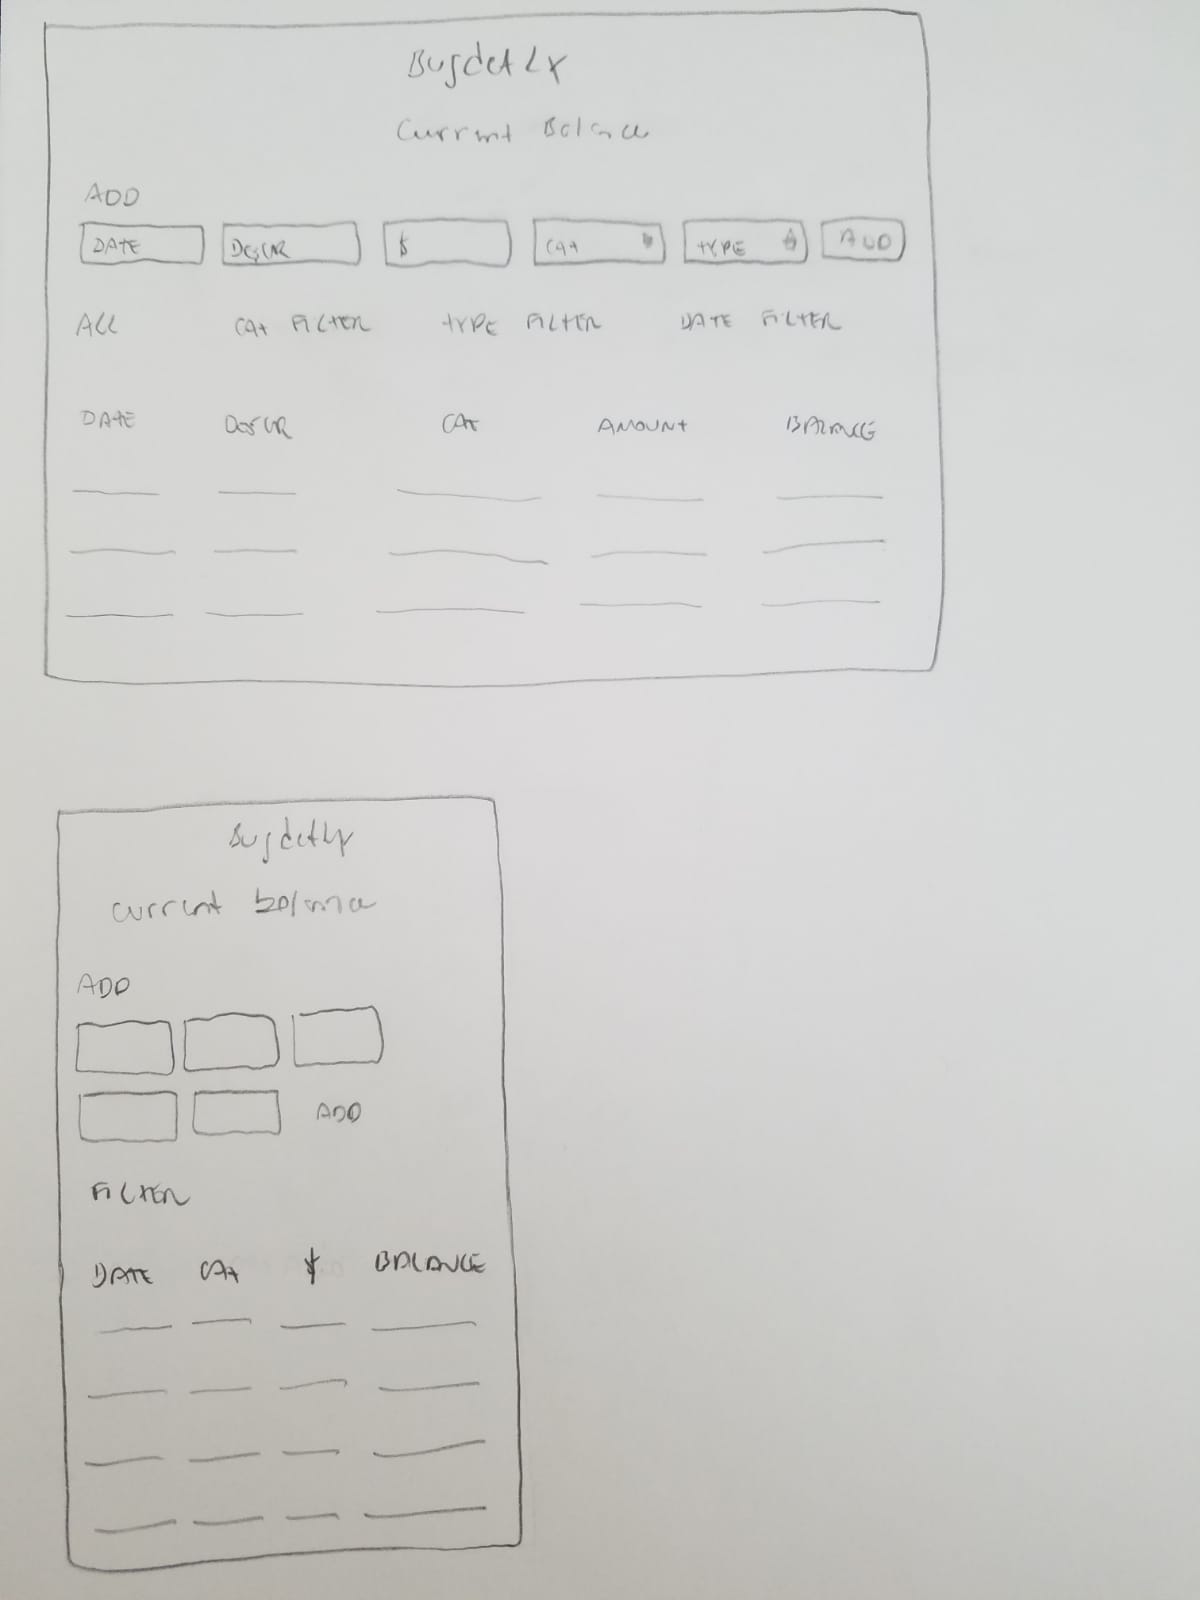 BugdetLy
Current Balance
ADD
DATE DESCR $ CAT TYPE ADD
ALL CAT FILTER TYPE FILTER DATE FILTER
DATE DESCR CAT AMOUNT BALANCE
BugdetLy
current balance
ADD
ADD
FILTER
DATE CAT $ BALANCE